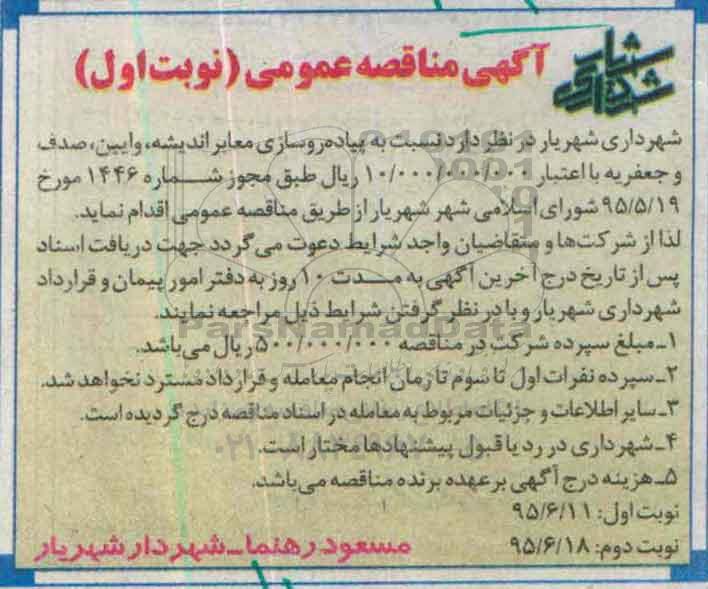 شهرداری شهریار
آگهی مناقصه عمومی (نوبت اول)
شهرداری شهریار در نظر دارد نسبت به پیاده‌روسازی معابر اندیشه، وایین، صدف
و جعفریه با اعتبار ۱۰/۰۰۰/۰۰۰/۰۰۰ ریال طبق مجوز شماره ۱۴۴۶ مورخ
۹۵/۵/۱۹ شورای اسلامی شهر شهریار از طریق مناقصه عمومی اقدام نماید.
لذا از شرکت‌ها و متقاضیان واجد شرایط دعوت می‌گردد جهت دریافت اسناد
پس از تاریخ درج آخرین آگهی به مدت ۱۰ روز به دفتر امور پیمان و قرارداد
شهرداری شهریار و با در نظر گرفتن شرایط ذیل مراجعه نمایند.
ParsNamadData
۱ـ مبلغ سپرده شرکت در مناقصه ۵۰۰/۰۰۰/۰۰۰ ریال می‌باشد.
۲ـ سپرده نفرات اول تا سوم تا زمان انجام معامله و قرارداد مسترد نخواهد شد.
۳ـ سایر اطلاعات و جزئیات مربوط به معامله در اسناد مناقصه درج گردیده است.
۴ـ شهرداری در رد یا قبول پیشنهادها مختار است.
۵ـ هزینه درج آگهی بر عهده برنده مناقصه می‌باشد.
نوبت اول: ۹۵/۶/۱۱
نوبت دوم: ۹۵/۶/۱۸
مسعود رهنما ـ شهردار شهریار